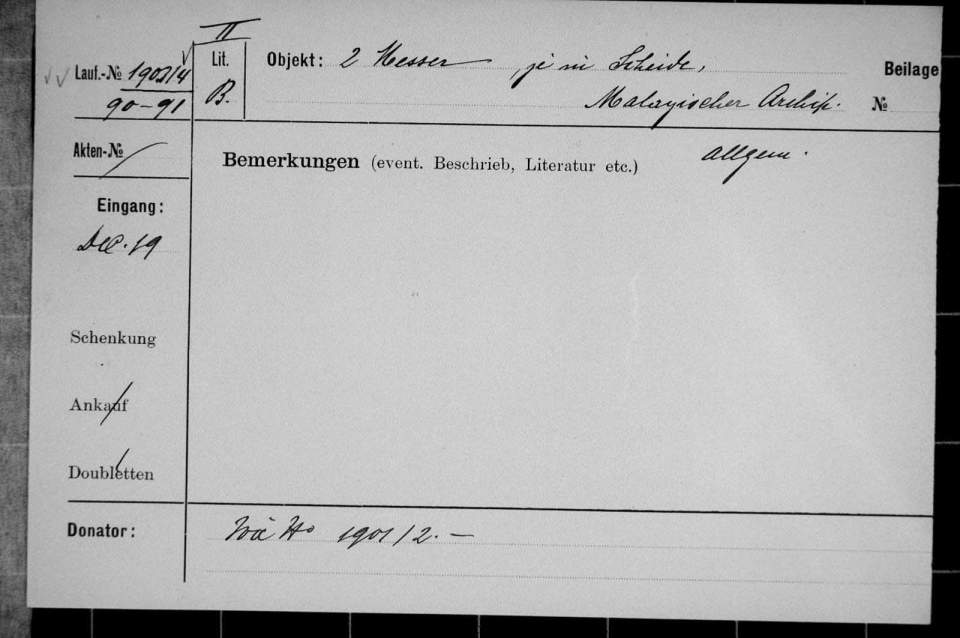 II
Lauf.-№ 1903/4
90-91
Lit.
B.
Objekt: 2 Messer, je in Scheide,
Malayischer Archip.
Beilage
№
Akten-№
Bemerkungen (event. Beschrieb, Literatur etc.)
allgem.
Eingang:
Dec. 19
Schenkung
Ankauf
Doubletten
Donator:
1901/2.-